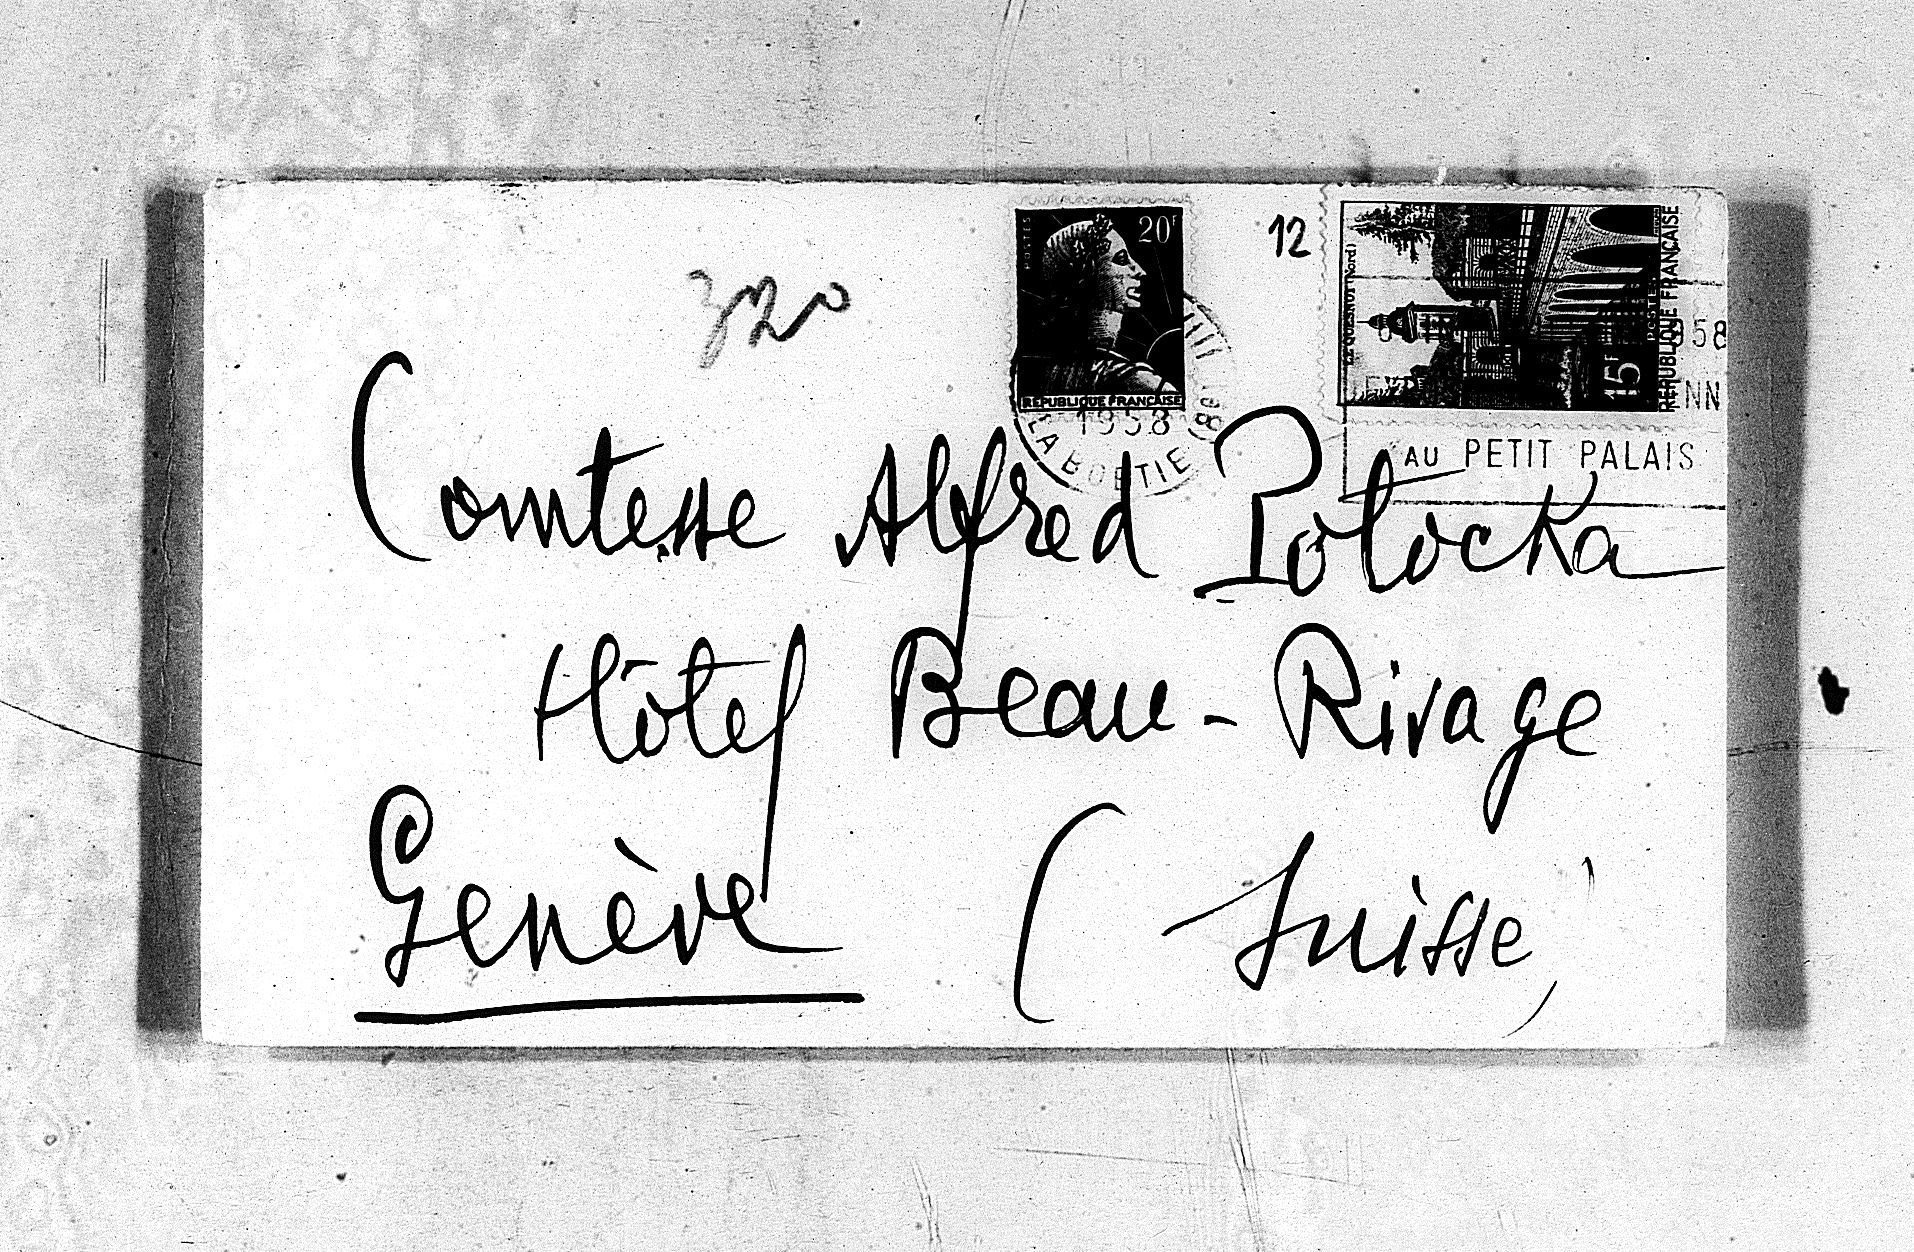 POSTES
20F
RÉPUBLIQUE FRANÇAISE
1958
LA BOETIE (8e)
12
LE QUESNOY (Nord)
POSTES
15F
RÉPUBLIQUE FRANÇAISE
958
AU PETIT PALAIS
320
Comtesse Alfred Potocka
Hôtel Beau-Rivage
Genève (Suisse)